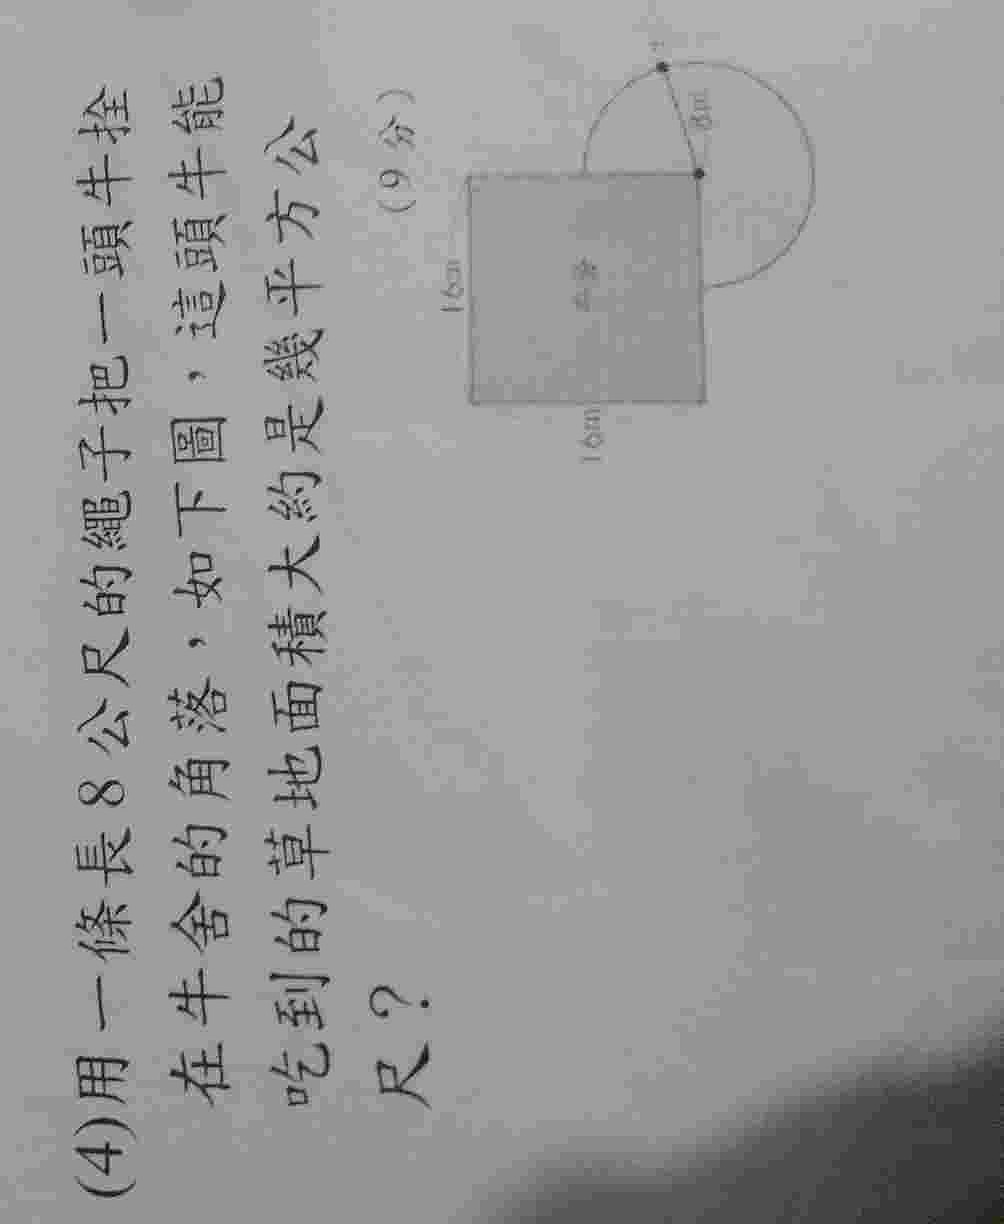 (4)用一條長8公尺的繩子把一頭牛拴
在牛舍的角落，如下圖，這頭牛能
吃到的草地面積大約是幾平方公
尺？
(9分)
16m
16m
牛舍
8m